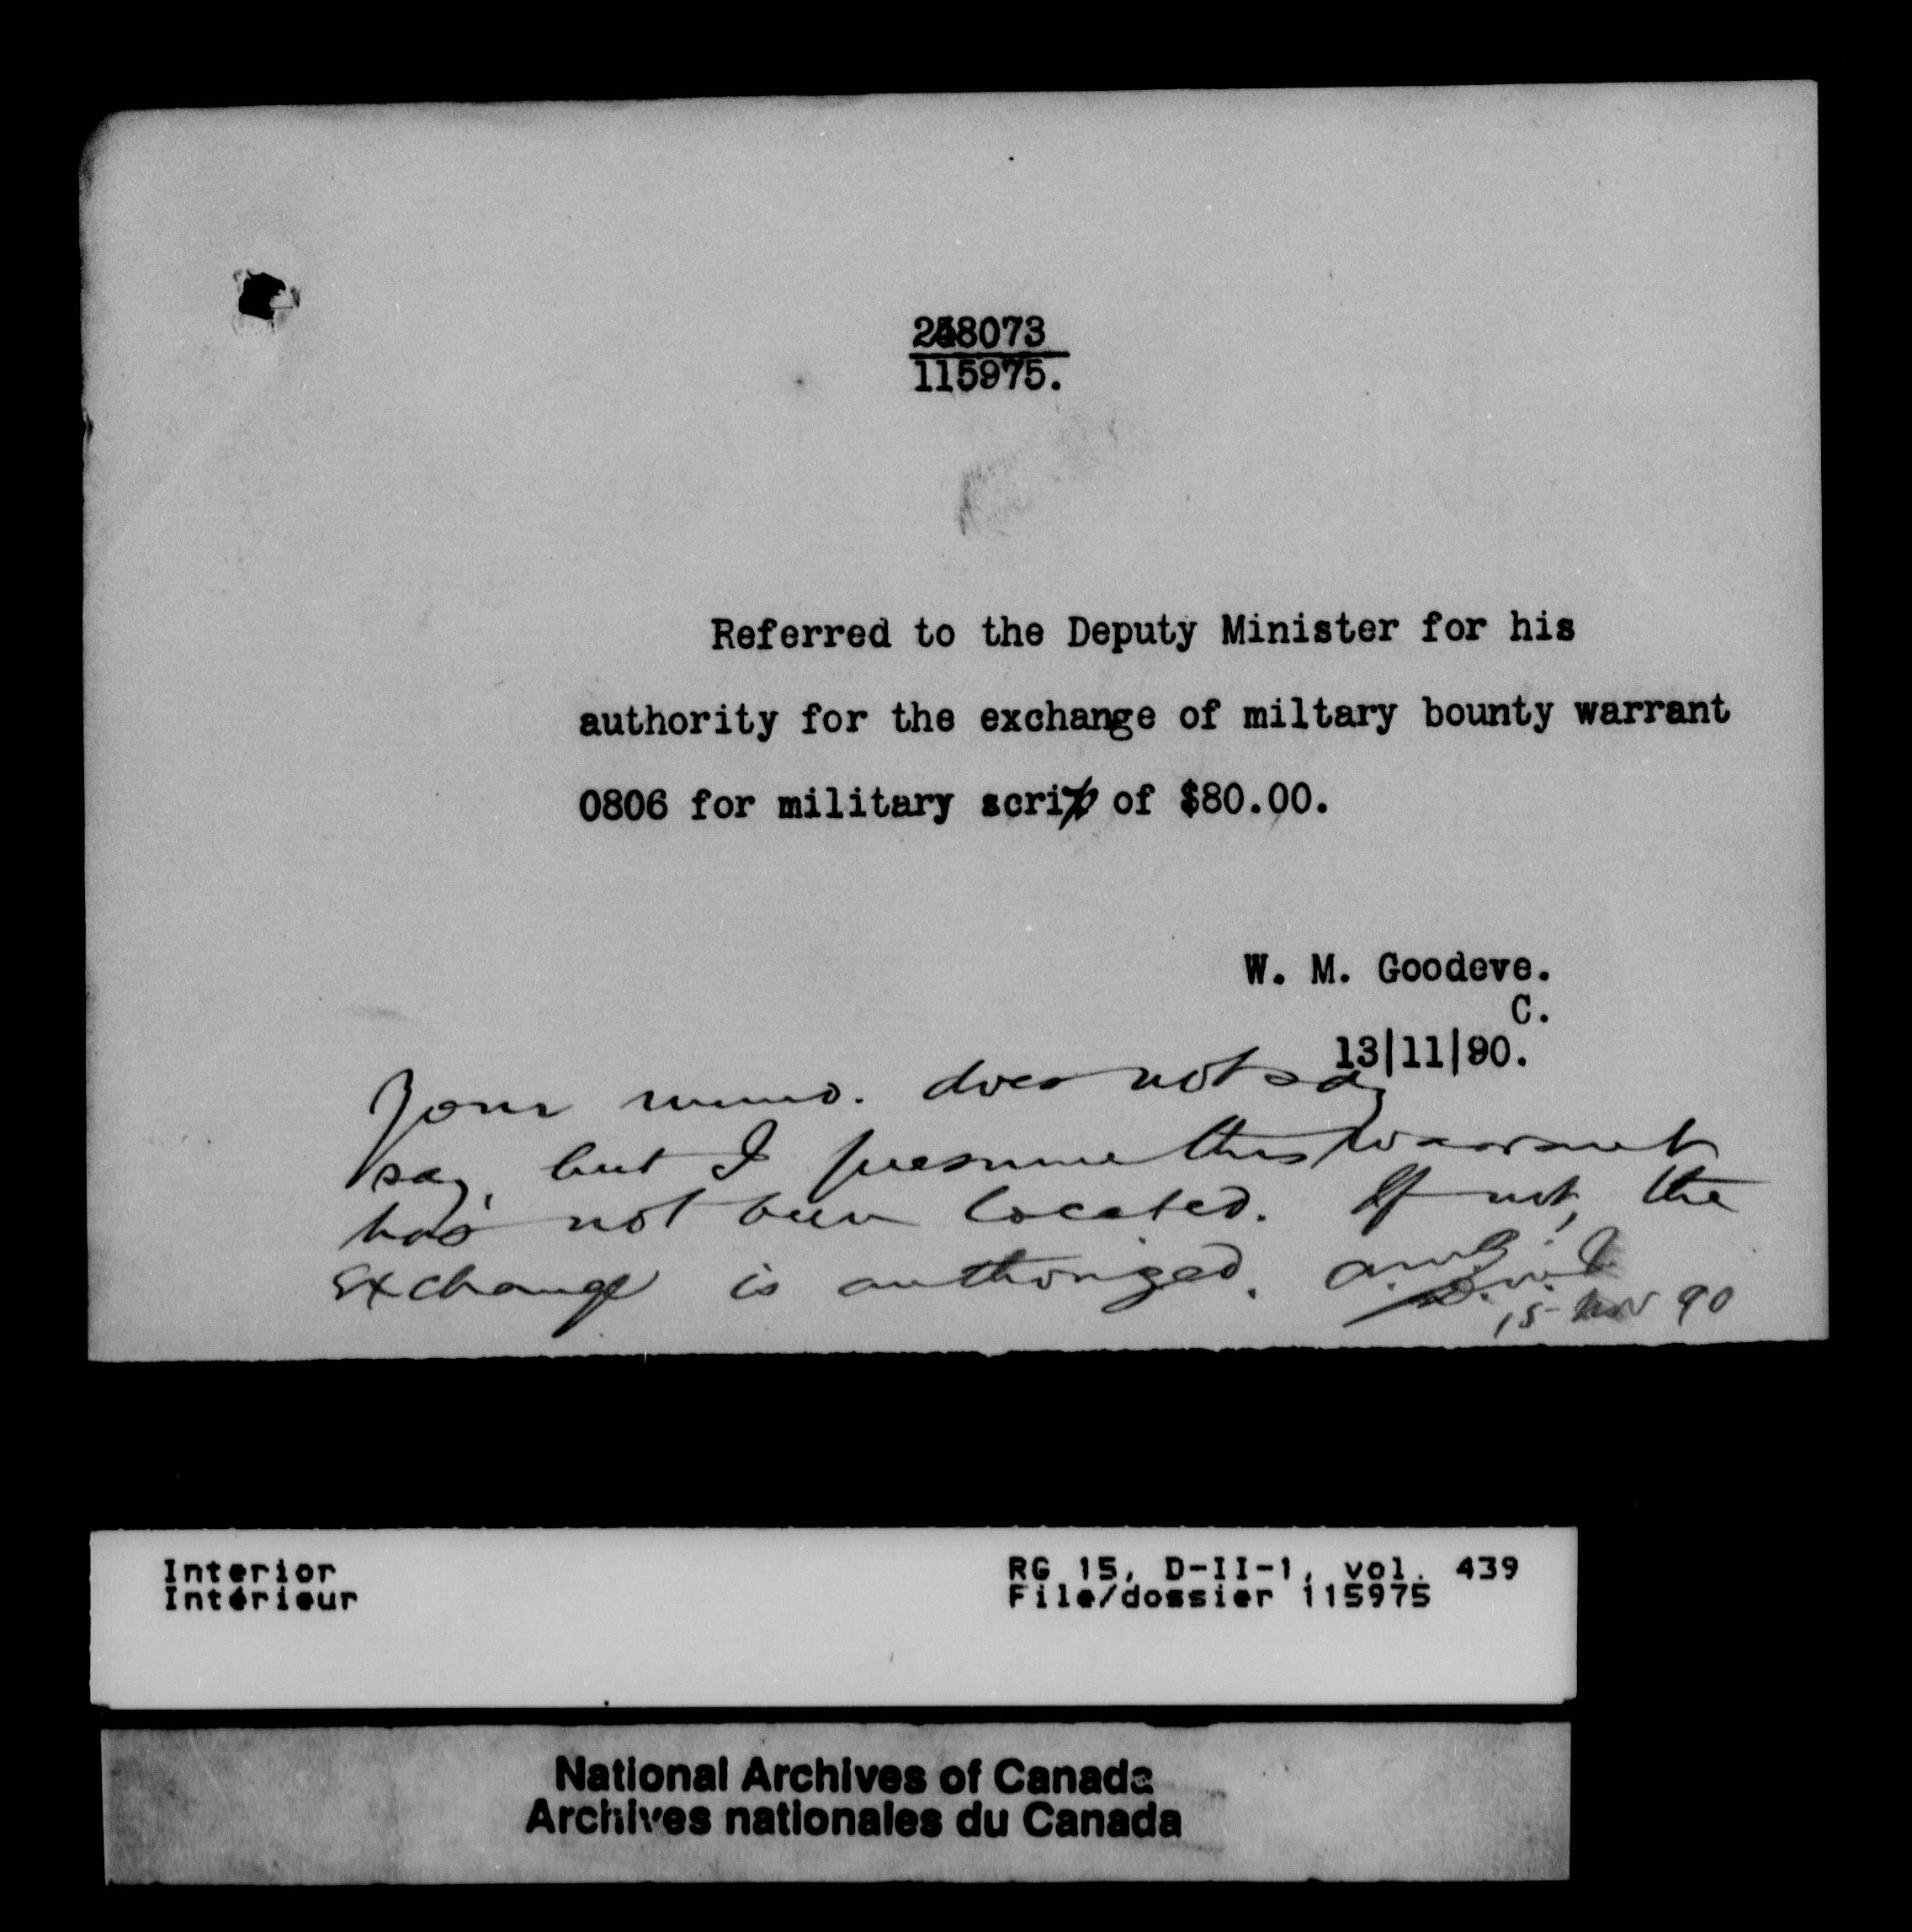 248073
115975.
Referred to the Deputy Minister for his
authority for the exchange of miltary bounty warrant
0806 for military scrip of $80.00.
W. M. Goodeve.
C.
13|11|90.
Your memo. does not say
say, but I presume this warrant
has not been located. If not, the
exchange is authorized.
15 Nov 90
Interior
Intérieur
RG 15, D-II-1, vol. 439
File/dossier 115975
National Archives of Canada
Archives nationales du Canada